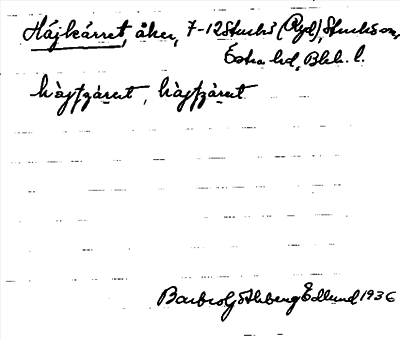 Hájkärret, åker, 7-12 Stucks (Ryd), Stucks sn,
Östra hd, Blek. l.
hàjʃɟárət, hàjʃɟárət
Barbro Göthberg Edlund 1936